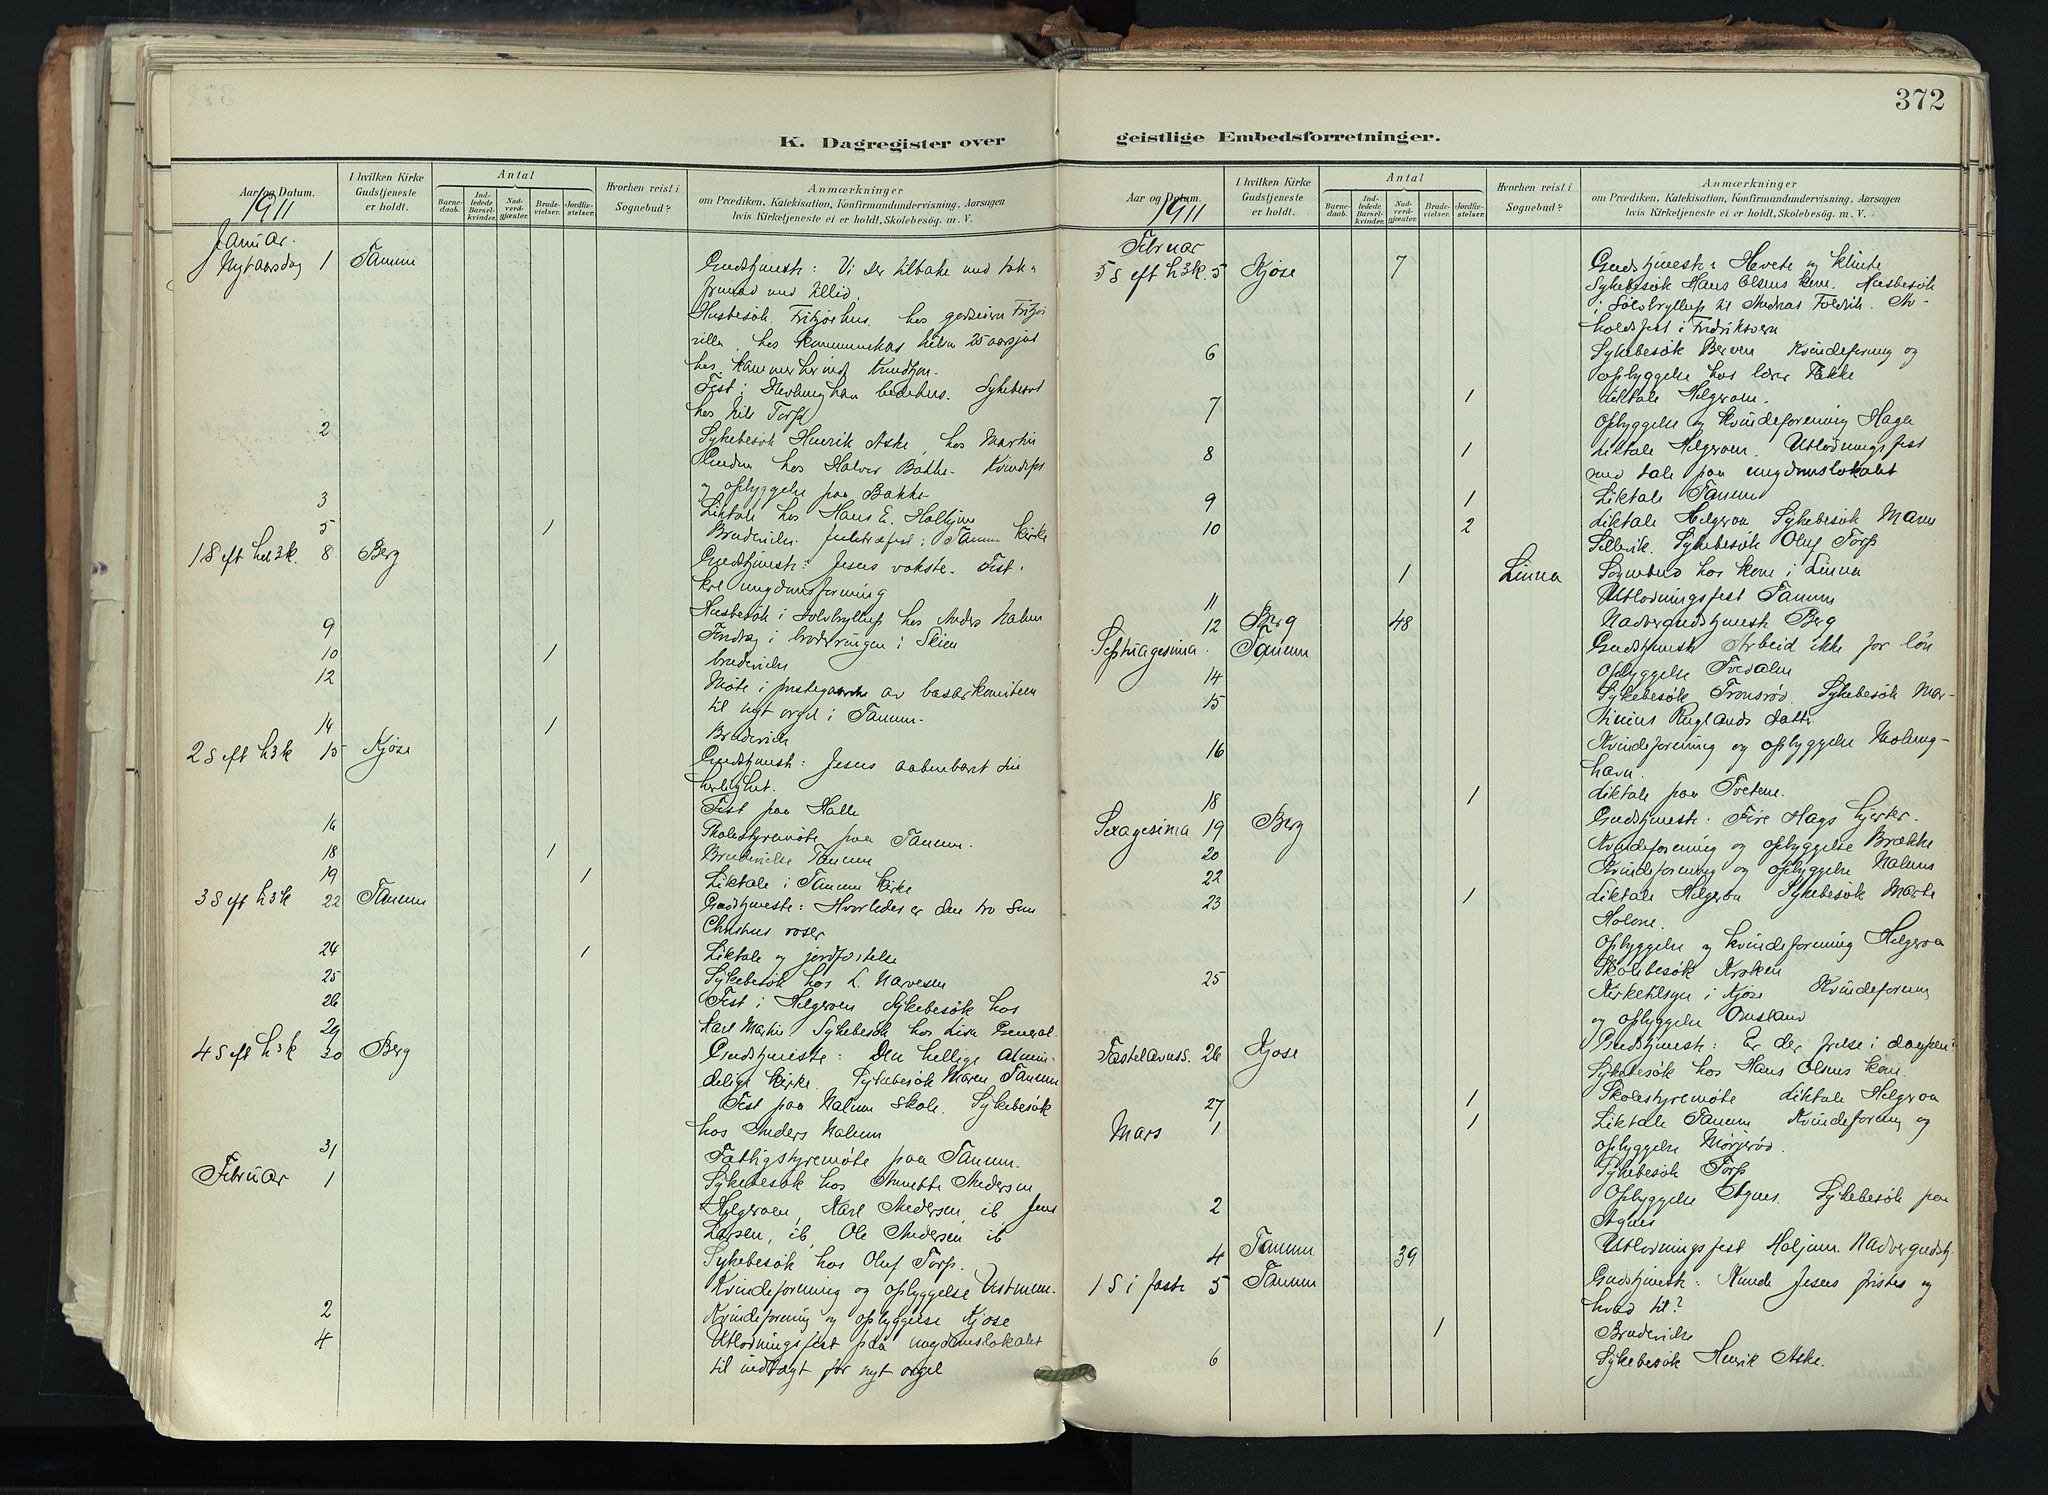 372
K. Dagregister over
geistlige Embedsforretninger.
Aar og Datum.
I hvilken Kirke Gudstjeneste er holdt.
Antal
Barne-daab.
Ind-ledede Barsel-kvinder.
Nad-verd-gjæster.
Brude-vielser.
Jordfæ-stelser.
Hvorhen reist i Sognebud?
Anmærkninger
om Prædiken, Katekisation, Konfirmandundervisning, Aarsagen
hvis Kirketjeneste ei er holdt, Skolebesøg. m. V.
1911
Januar.
Nytaarsdag 1 Tanum Gudstjeneste: Vi ser tilbake med tak,
fremad med tillid.
Husbesøk Fritzøehus. hos godseieren Fritzøe
villa, hos
hos Kammerherinde
Fest i bedehus. Sykebesøk
hos Nils Torp
2 Sykebesøk Henrik Aske, hos Martin
hos Halvor Bakke. Kvindef
og opbyggelse paa Bakke
3 Liktale hos Hans E.
5 1 Brudevielse. Juletræfest i Tanum kirke
1 S eft hel 3 k. 8 Berg Gudstjeneste: Jesus vokste. Fest
ungdomsforening
Husbesøk i Solvbryllup hos Anders Nalum
9 Foredrag i broderringen i Skien
10 1 brudevielse
12 Møte i prestegaarden av basarkomiteen
til nyt orgel i Tanum.
14 1 Brudevielse
2 S eft h 3 k 15 Kjose Gudstjeneste: Jesus aabenbaret sin
herlighet.
Fest paa Halle
16 Skolestyremøte paa Tanum.
18 1 Brudevielse Tanum
19 1 Liktale i Tanum kirke
3 S eft h 3 k 22 Tanum Gudstjeneste: Hvorledes er den tro som
Christus roser
24 1 Liktale og jordfæstelse
25 Sykebesøk hos L. Narvesen
26 Fest i Helgeroen Sykebesøk hos
29 Karl Martin Sykebesøk hos Lisa General.
4 S eft h 3 k 30 Berg Gudstjeneste: Den hellige almin-
delige kirke. Sykebesøk Maren Tanum
Fest paa Nalum skole. Sykebesøk
hos Anders Nalum
31 Fattigstyremøte paa Tanum.
Februar 1 Sykebesøk hos Annette Andersen
Helgeroen, Karl Andersen ib Jens
Larsen, ib, Ole Andersen ib
Sykebesøk hos Oluf Torp.
Kvindeforening og opbyggelse
2 Kvindeforening og opbyggelse Kjose
4 Utlodningsfest paa ungdomslokalet
til indtægt for nyt orgel
Aar og Datum.
I hvilken Kirke Gudstjeneste er holdt.
Antal
Barne-daab.
Ind-ledede Barsel-kvinder.
Nad-verd-gjæster.
Brude-vielser.
Jordfæ-stelser.
Hvorhen reist i Sognebud?
Anmærkninger
om Prædiken, Katekisation, Konfirmandundervisning, Aarsagen
hvis Kirketjeneste ei er holdt, Skolebesøg. m. V.
1911
Februar
5 S eft h 3 k. 5 Kjose 7 Gudstjeneste: Hvete og klinte
Sykebesøk Hans Olsens kone. Husbesøk
i Sølvbryllup til Andreas Foldvik. Av-
holdsfest i Fredriksvern
6 Sykebesøk Berven Kvindeforening og
opbyggelse hos lærer Bakke
7 1 Liktale Helgeroen.
Opbyggelse og kvindeforening Hage
8 1 Liktale Helgeroen. Utlodningsfest
med tale paa ungdomslokalet
9 1 Liktale Tanum
10 2 Liktale Helgeroa Sykebesøk Maren
Sykebesøk Oluf Torp
1 Linna Sognebud hos kone i Linna
11 Utlodningsfest Tanum
12 Berg 48 Nadvergudstjeneste Berg
Septuagesima. Tanum Gudstjeneste Arbeid ikke for løn
14 Opbyggelse Tvedalen
15 Sykebesøk Tronsrød Sykebesøk Mar-
tinius Ruglands datter
16 Kvindeforening og opbyggelse
havn.
18 1 Liktale paa Tvetene.
Sexagesima 19 Berg Gudstjeneste: Fire slags hjerter.
20 Kvindeforening og opbyggelse Brække
22 Kvindeforening og opbyggelse Nalum
23 1 Liktale Helgeroa Sykebesøk Marte
Opbyggelse og kvindeforening Helgeroa
25 Skolebesøk Kroken
Kirketilsyn i Kjose Kvindeforening
og opbyggelse Omsland
Fastelavnss. 26 Kjose Gudstjeneste: Er der frelse i daapen?
Sykebesøk hos Hans Olsens kone.
27 1 Skolestyremøte Liktale Helgeroa
Mars 1 1 Liktale Tanum Kvindeforening og
opbyggelse Mørjerød.
Sykebesøk Torp
2 Opbyggelse Agnes. Sykebesøk paa
Agnes
4 Tanum 39 Utlodningsfest Holjum. Nadvergudstj.
1 S i faste 5 Tanum Gudstjeneste: Kunde Jesus fristes og
hvad til?
1 Brudevielse
6 Sykebesøk Henrik Aske.